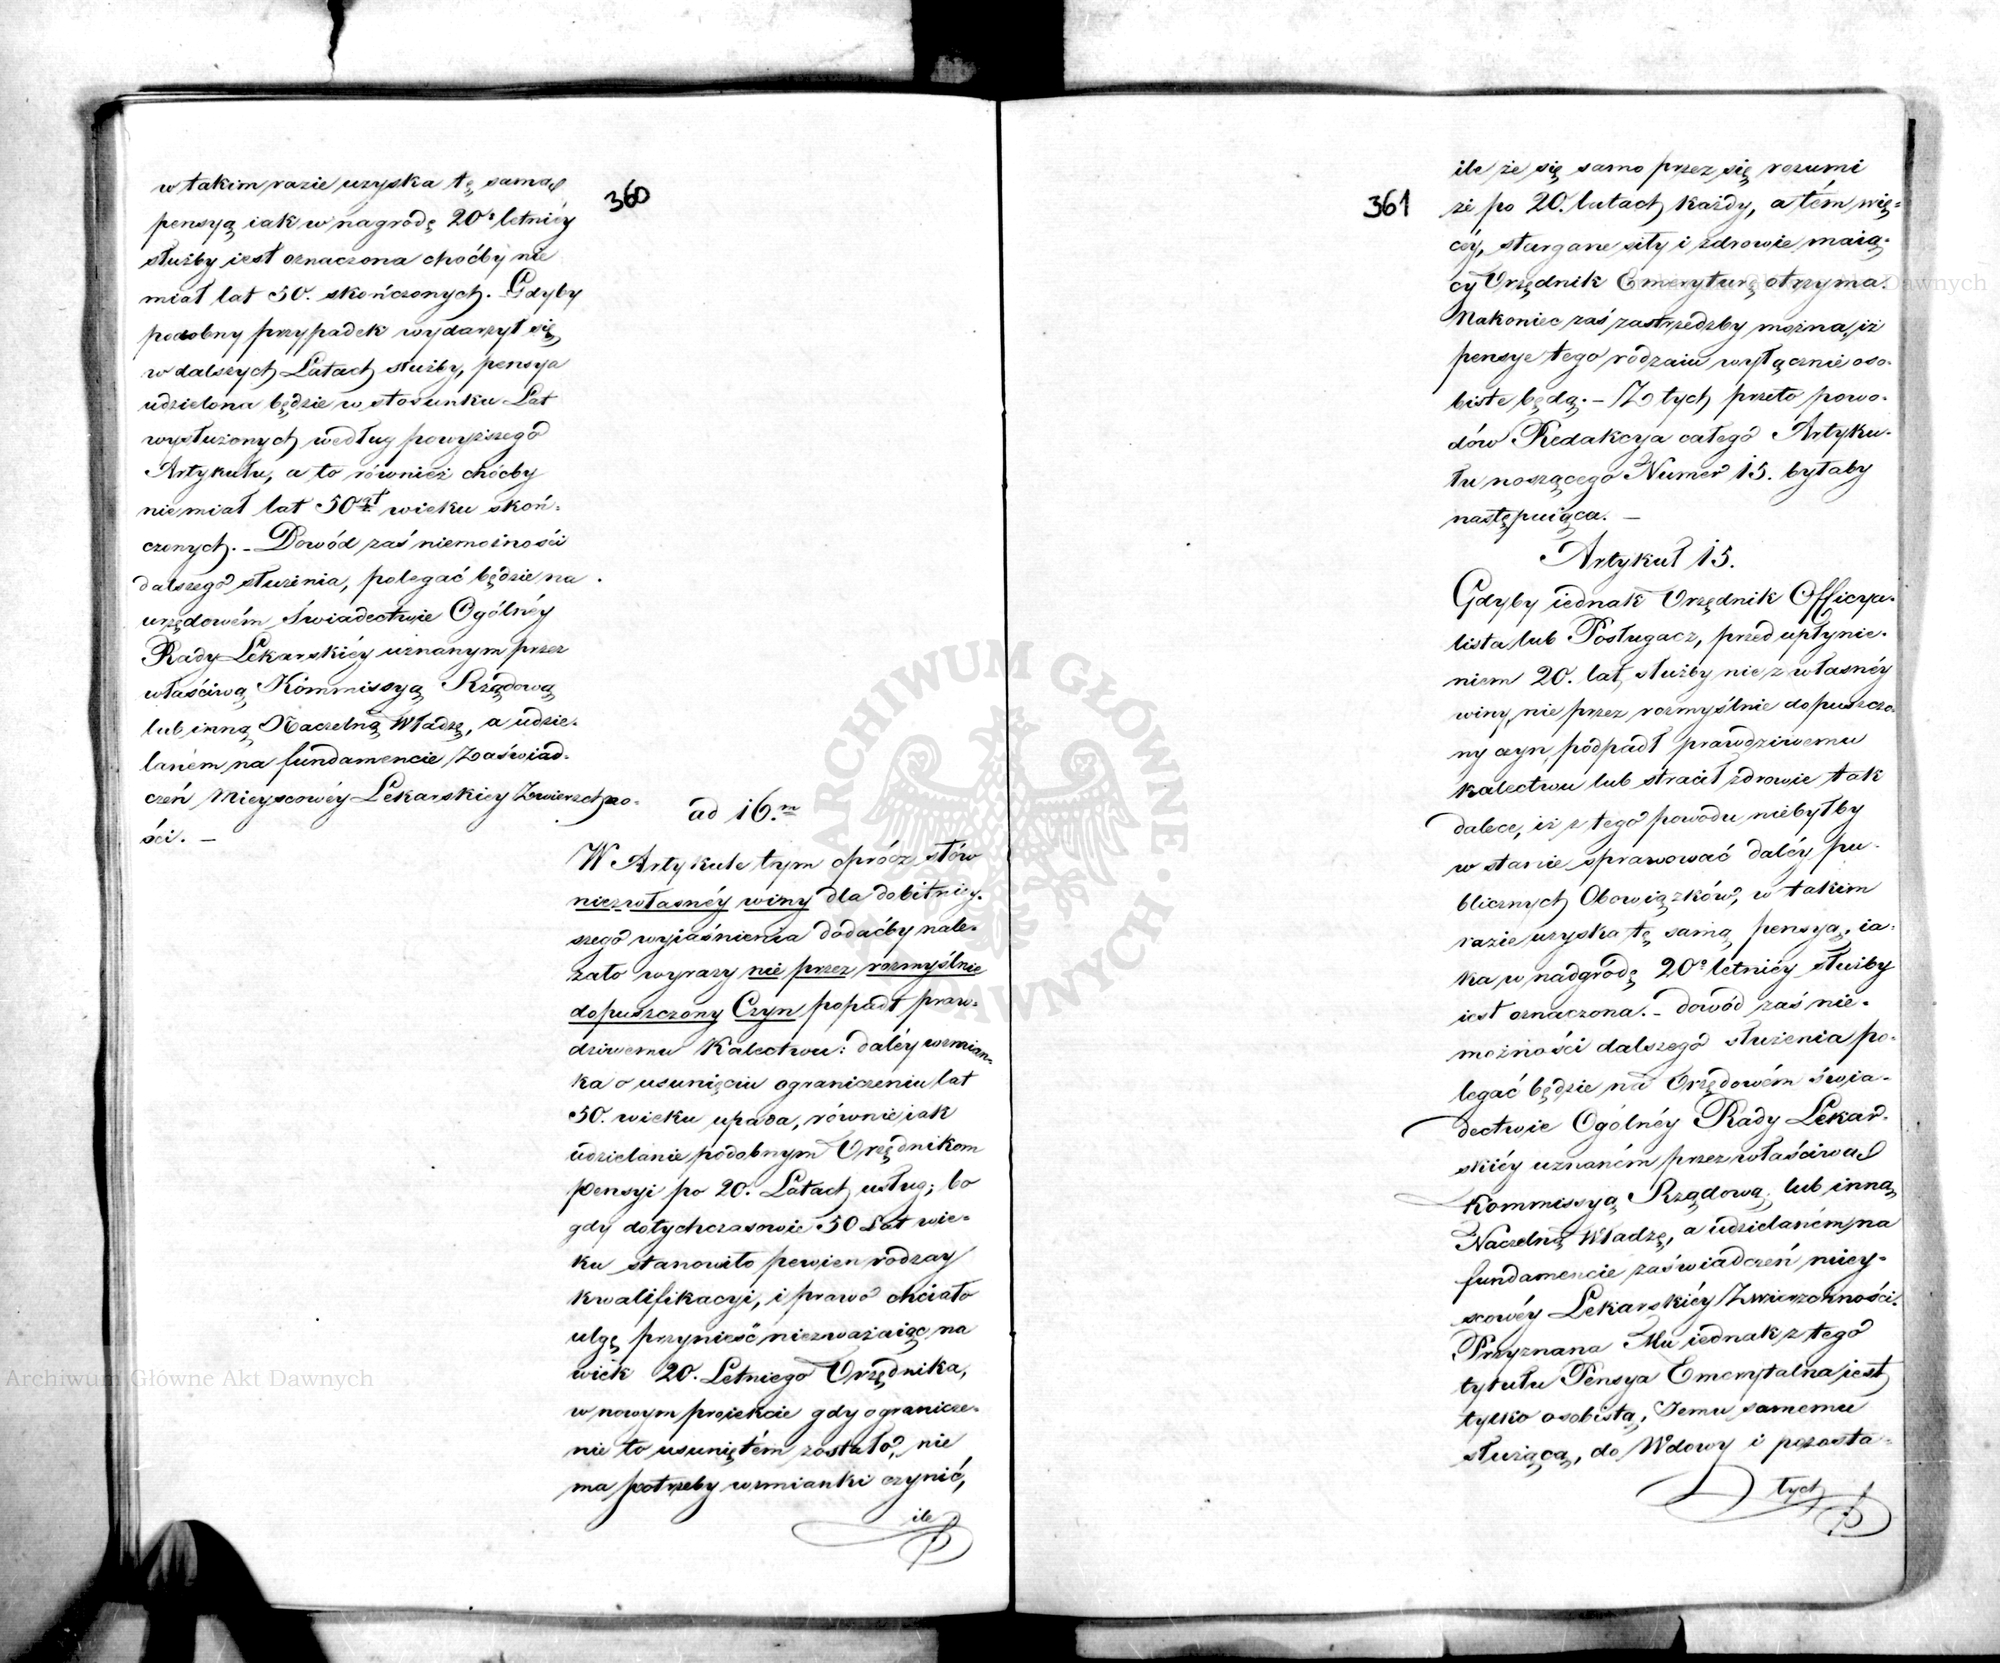 360
w takim razie uzyska tę samą
pensyą iak w nagrodę 20o letniéy
służby iest oznaczona choćby nie
miał lat 50. skończonych. Gdyby
podobny przypadek wydarzył się
w dalszych Latach służby, pensya
udzielona będzie w stosunku Lat
wysłużonych według powyższego
Artykułu, a to również chóćby
niemiał lat 50 wieku skoń-
czonych. - Dowód zaś niemożności
dalszego służenia, polegać będzie na
urzędowém Świadectwie Ogólnéy
Rady Lekarskiéy uznanym przez
właściwą Kommissyą Rządową
lub inną Naczelną Władzę, a udzie-
laném na fundamencie Zaświad-
czeń Mieyscowéy Lekarskiey Zwierzchno-
ści. -
ad 16.m
W Artykule tym oprócz słów
niezwłasnéy winy dla dobitniey-
szego wyjaśnienia dodaćby nale-
żało wyrazy nie przez rozmyślnie
dopuszczony Czyn popadł praw-
dziwemu Kalectwu: daléy wzmian-
ka o usunięciu ograniczeniu lat
50. wieku upada, równie iak
udzielanie podobnym Urzędnikom
pensyi po 20. Latach usług; bo
gdy dotychczasowie 50 Lat wie-
ku stanowiło pewien rodzay
kwalifikacyi, i prawo chciało
ulgę przynieść niezważaiąc na
wiek 20. Letniego Urzędnika,
w nowym proiekcie gdy ogranicze-
nie to usuniętém zostało, nie
ma potrzeby wzmianki czynić,
ile
361
ile że się samo przez się rozumi
że po 20. latach każdy, a tém wię-
céy, stargane siły i zdrowie maią-
cy Urzędnik Emeryturę otrzyma.
Nakoniec zaś zastrzedzby można, iż
pensye tego rodzaiu wyłącznie oso-
biste będą. - Z tych przeto powo-
dów Redakcya całego Artyku-
łu noszącego Numer 15. byłaby
następuiąca. -
Artykuł 15.
Gdyby iednak Urzędnik Officya-
lista lub Posługacz, przed upłynie-
niem 20. lat, służby nie z własnéy
winy, nie przez rozmyślnie dopuszczo-
ny czyn, podpadł prawdziwemu
kalectwu lub stracił zdrowie tak
dalece, iż z tego powodu niebyłby
w stanie sprawować daléy pu-
blicznych Obowiązków, w takim
razie uzyska tę samą pensyą, ia-
ka w nadgrodę 20o letniéy służby
iest oznaczona. - dowód zaś nie-
możności dalszego służenia po-
legać będzie na Urzędowém świa-
dectwie Ogólnéy Rady Lekar-
skiéy uznaném przez właściwą
Kommissyą Rządową, lub inną
Naczelną Władzę, a udzielaném na
fundamencie zaświadczeń miey-
scowéy Lekarskiéy Zwierzchności.
Przyznana Mu iednak z tego
tytułu Pensya Emerytalna iest
tylko osobistą, Jemu samemu
służącą, do Wdowy i pozosta-
łych
ARCHIWUM GŁÓWNE AKT DAWNYCH
Archiwum Główne Akt Dawnych
Archiwum Główne Akt Dawnych